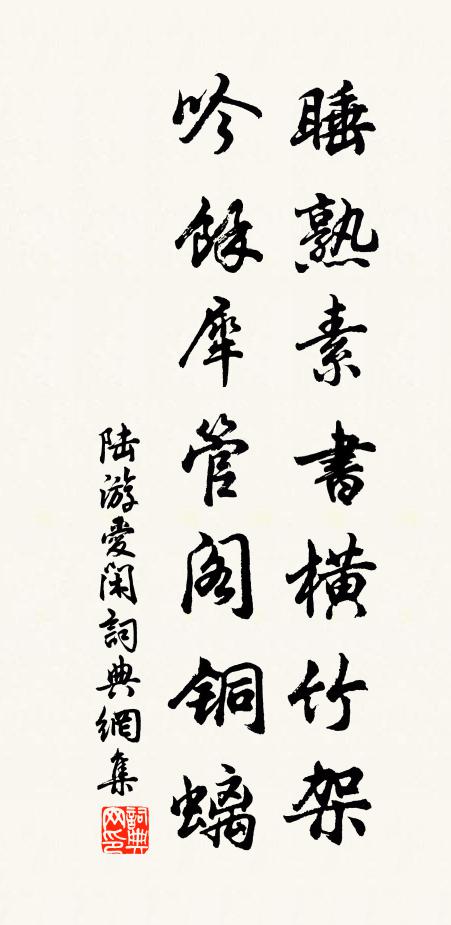 睡熟素書橫竹架
吟餘犀管閣銅螭
陆游愛閑詞典網集
詞典網印